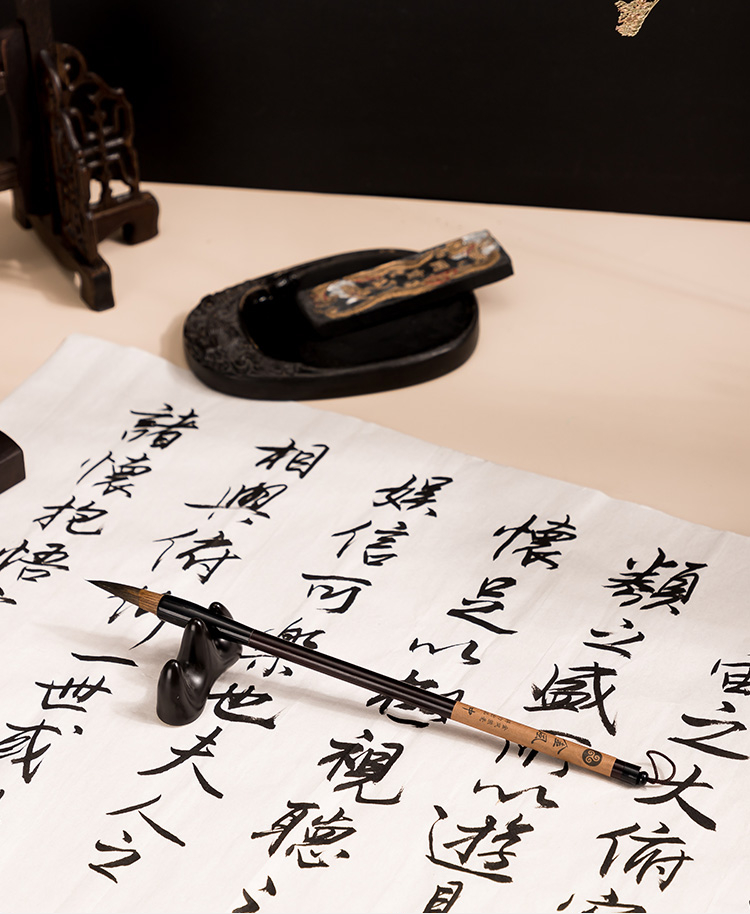 宙之大俯
類之盛以遊目
懷足以視聽之
娛信可樂也夫人之
相與俯仰一世或
諸懷抱悟
金風
中